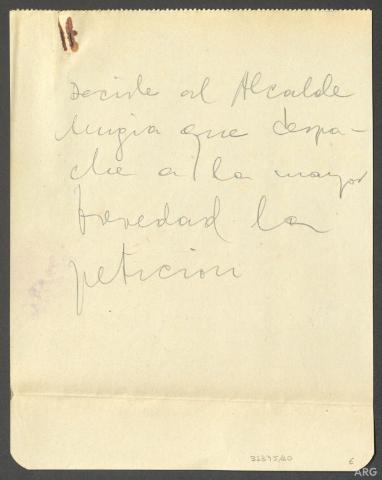 Decirle al Alcalde
Mugia que despa-
che a la mayor
brevedad la
peticion
32375/20
E
ARG